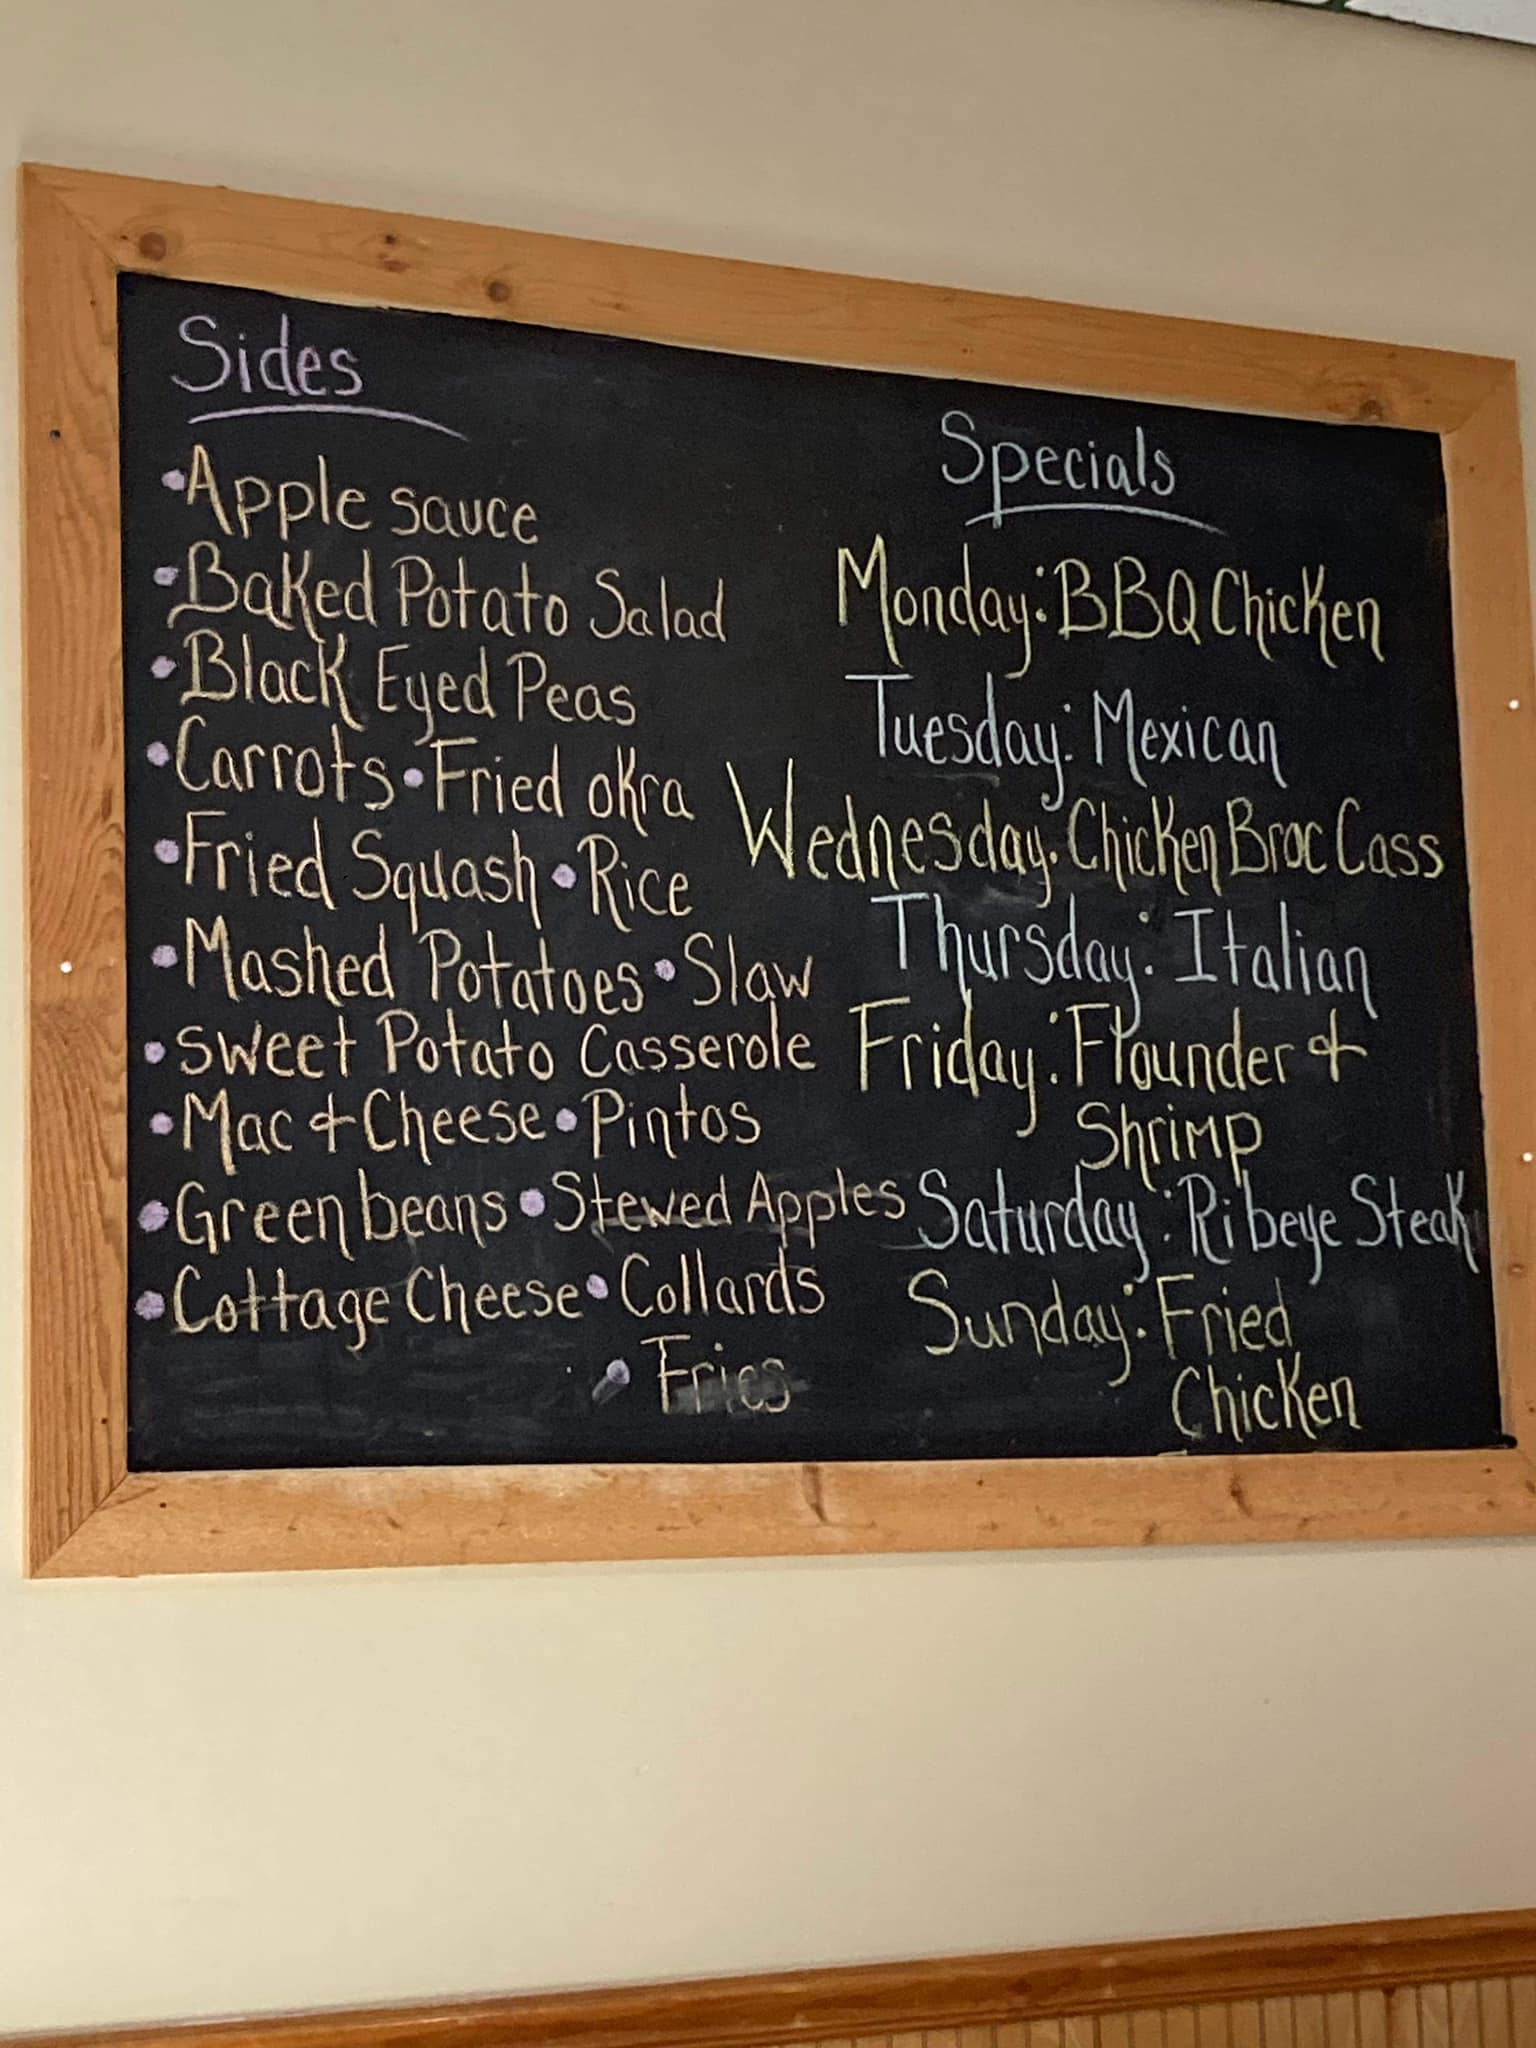 Sides
• Apple sauce
• Baked Potato Salad
• Black Eyed Peas
• Carrots • Fried okra
• Fried Squash • Rice
• Mashed Potatoes • Slaw
• Sweet Potato Casserole
• Mac & Cheese • Pintos
• Green beans • Stewed Apples
• Cottage Cheese • Collards
• Fries
Specials
Monday: BBQ Chicken
Tuesday: Mexican
Wednesday: Chicken Broc Cass
Thursday: Italian
Friday: Flounder &
Shrimp
Saturday: Ribeye Steak
Sunday: Fried
Chicken